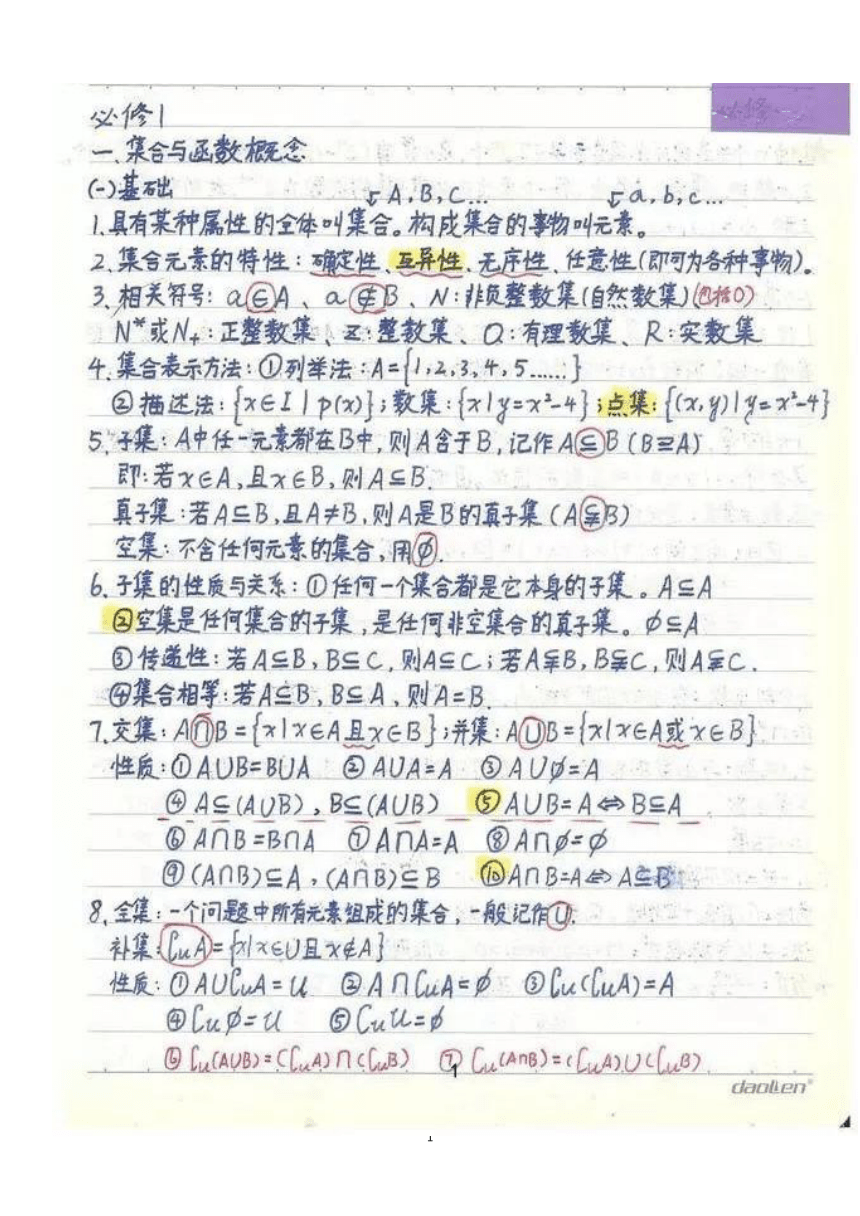 必修一
必修1
一、集合与函数概念
(一)基础
↓A,B,C… ↓a,b,c…
1.具有某种属性的全体叫集合。构成集合的事物叫元素。
2.集合元素的特性：确定性、互异性、无序性、任意性(即可为各种事物)。
3.相关符号：a∈A、a∉B、N：非负整数集(自然数集)(包括0)
N*或N₊：正整数集、Z：整数集、Q：有理数集、R：实数集
4.集合表示方法：①列举法：A={1,2,3,4,5……}
②描述法：{x∈I|p(x)}；数集：{x|y=x²-4}；点集：{(x,y)|y=x²-4}
5.子集：A中任一元素都在B中，则A含于B，记作A⊆B(B⊇A)
即：若x∈A,且x∈B,则A⊆B.
真子集：若A⊆B,且A≠B,则A是B的真子集(A⫋B)
空集：不含任何元素的集合,用∅.
6.子集的性质与关系：①任何一个集合都是它本身的子集。A⊆A
②空集是任何集合的子集，是任何非空集合的真子集。∅⊆A
③传递性：若A⊆B,B⊆C,则A⊆C；若A⫋B,B⫋C,则A⫋C.
④集合相等：若A⊆B,B⊆A,则A=B.
7.交集：A∩B={x|x∈A且x∈B}；并集：A∪B={x|x∈A或x∈B}
性质：①A∪B=B∪A ②A∪A=A ③A∪∅=A
④A⊆(A∪B),B⊆(A∪B) ⑤A∪B=A⇔B⊆A
⑥A∩B=B∩A ⑦A∩A=A ⑧A∩∅=∅
⑨(A∩B)⊆A,(A∩B)⊆B ⑩A∩B=A⇔A⊆B
8.全集：一个问题中所有元素组成的集合，一般记作U.
补集：∁uA={x|x∈U且x∉A}
性质：①A∪∁uA=U ②A∩∁uA=∅ ③∁u(∁uA)=A
④∁u∅=U ⑤∁uU=∅
⑥∁u(A∪B)=(∁uA)∩(∁uB) ⑦∁u(A∩B)=(∁uA)∪(∁uB)
1
daolen®
1